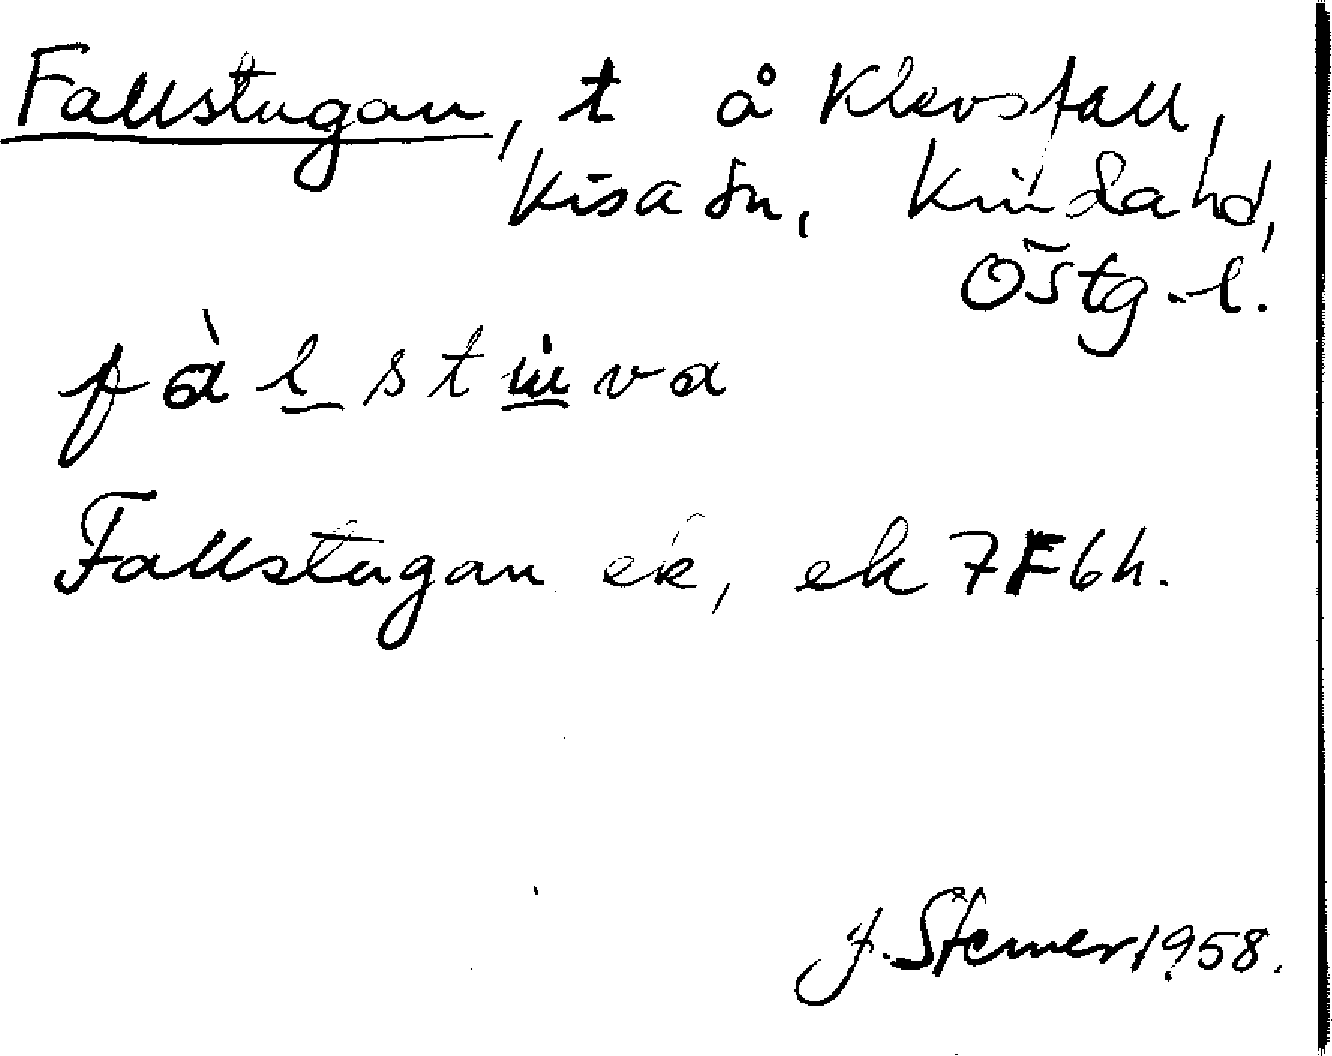 Fallstugan, t å Klevsfall,
Kisa sn, Kinda hd,
Östg. l.
fàlstuva
Fallstugan ek, ek 7F6h.
J. Sterner 1958.